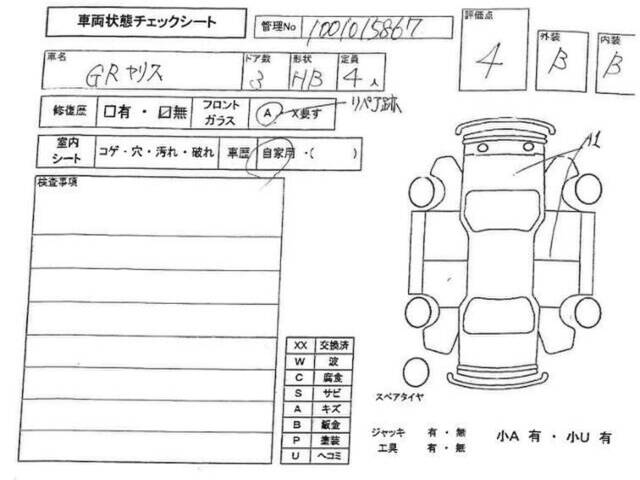 車両状態チェックシート
管理No 1001015867
評価点 4
外装 B
内装 B
車名 GRヤリス
ドア数 3
形状 HB
定員 4人
修復歴 □有・☑無
フロントガラス A X要す
リペア跡
室内シート コゲ・穴・汚れ・破れ
車歴 自家用・( )
検査事項
A1
XX 交換済
W 波
C 腐食
S サビ
A キズ
B 鈑金
P 塗装
U ヘコミ
スペアタイヤ
ジャッキ 有・無
工具 有・無
小A 有・小U 有